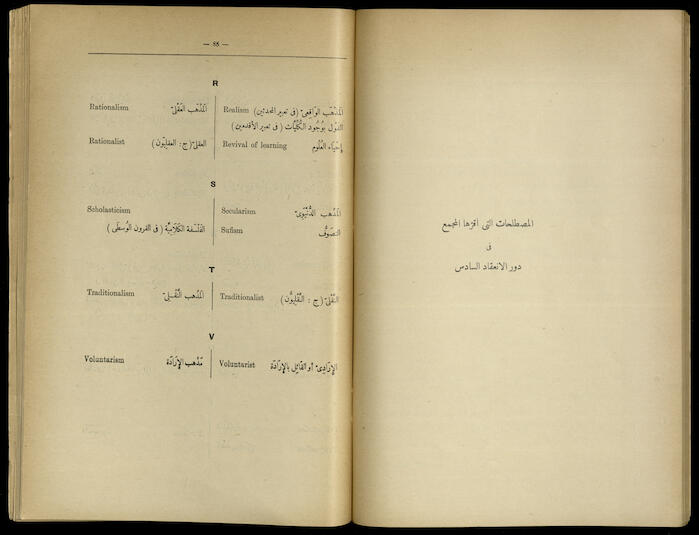 — 88 —
R
Rationalism المذهب العقلىّ
Rationalist العقلىّ (ج: العقليّون)
Realism المذهب الواقعىّ (فى تعبير المحدثين)
القول بوُجُود الكُلّيَّات (فى تعبير الأقدمين)
Revival of learning إحْيَاء العُلُوم
S
Scholasticism الفَلْسَفة الكَلَامِيَّة (فى القرون الوُسطَى)
Secularism المذهب الدُّنْيَوِىّ
Sufism التصَوُّف
T
Traditionalism المذهب النَّقْلِىّ
Traditionalist النَّقْلىّ (ج: النَّقْلِيُّون)
V
Voluntarism مَذْهب الإِرَادَة
Voluntarist الإِرَادِىّ أو القَائِل بالإِرَادَة
المصطلحات التى أقرّها المجمع
فى
دور الانعقاد السادس